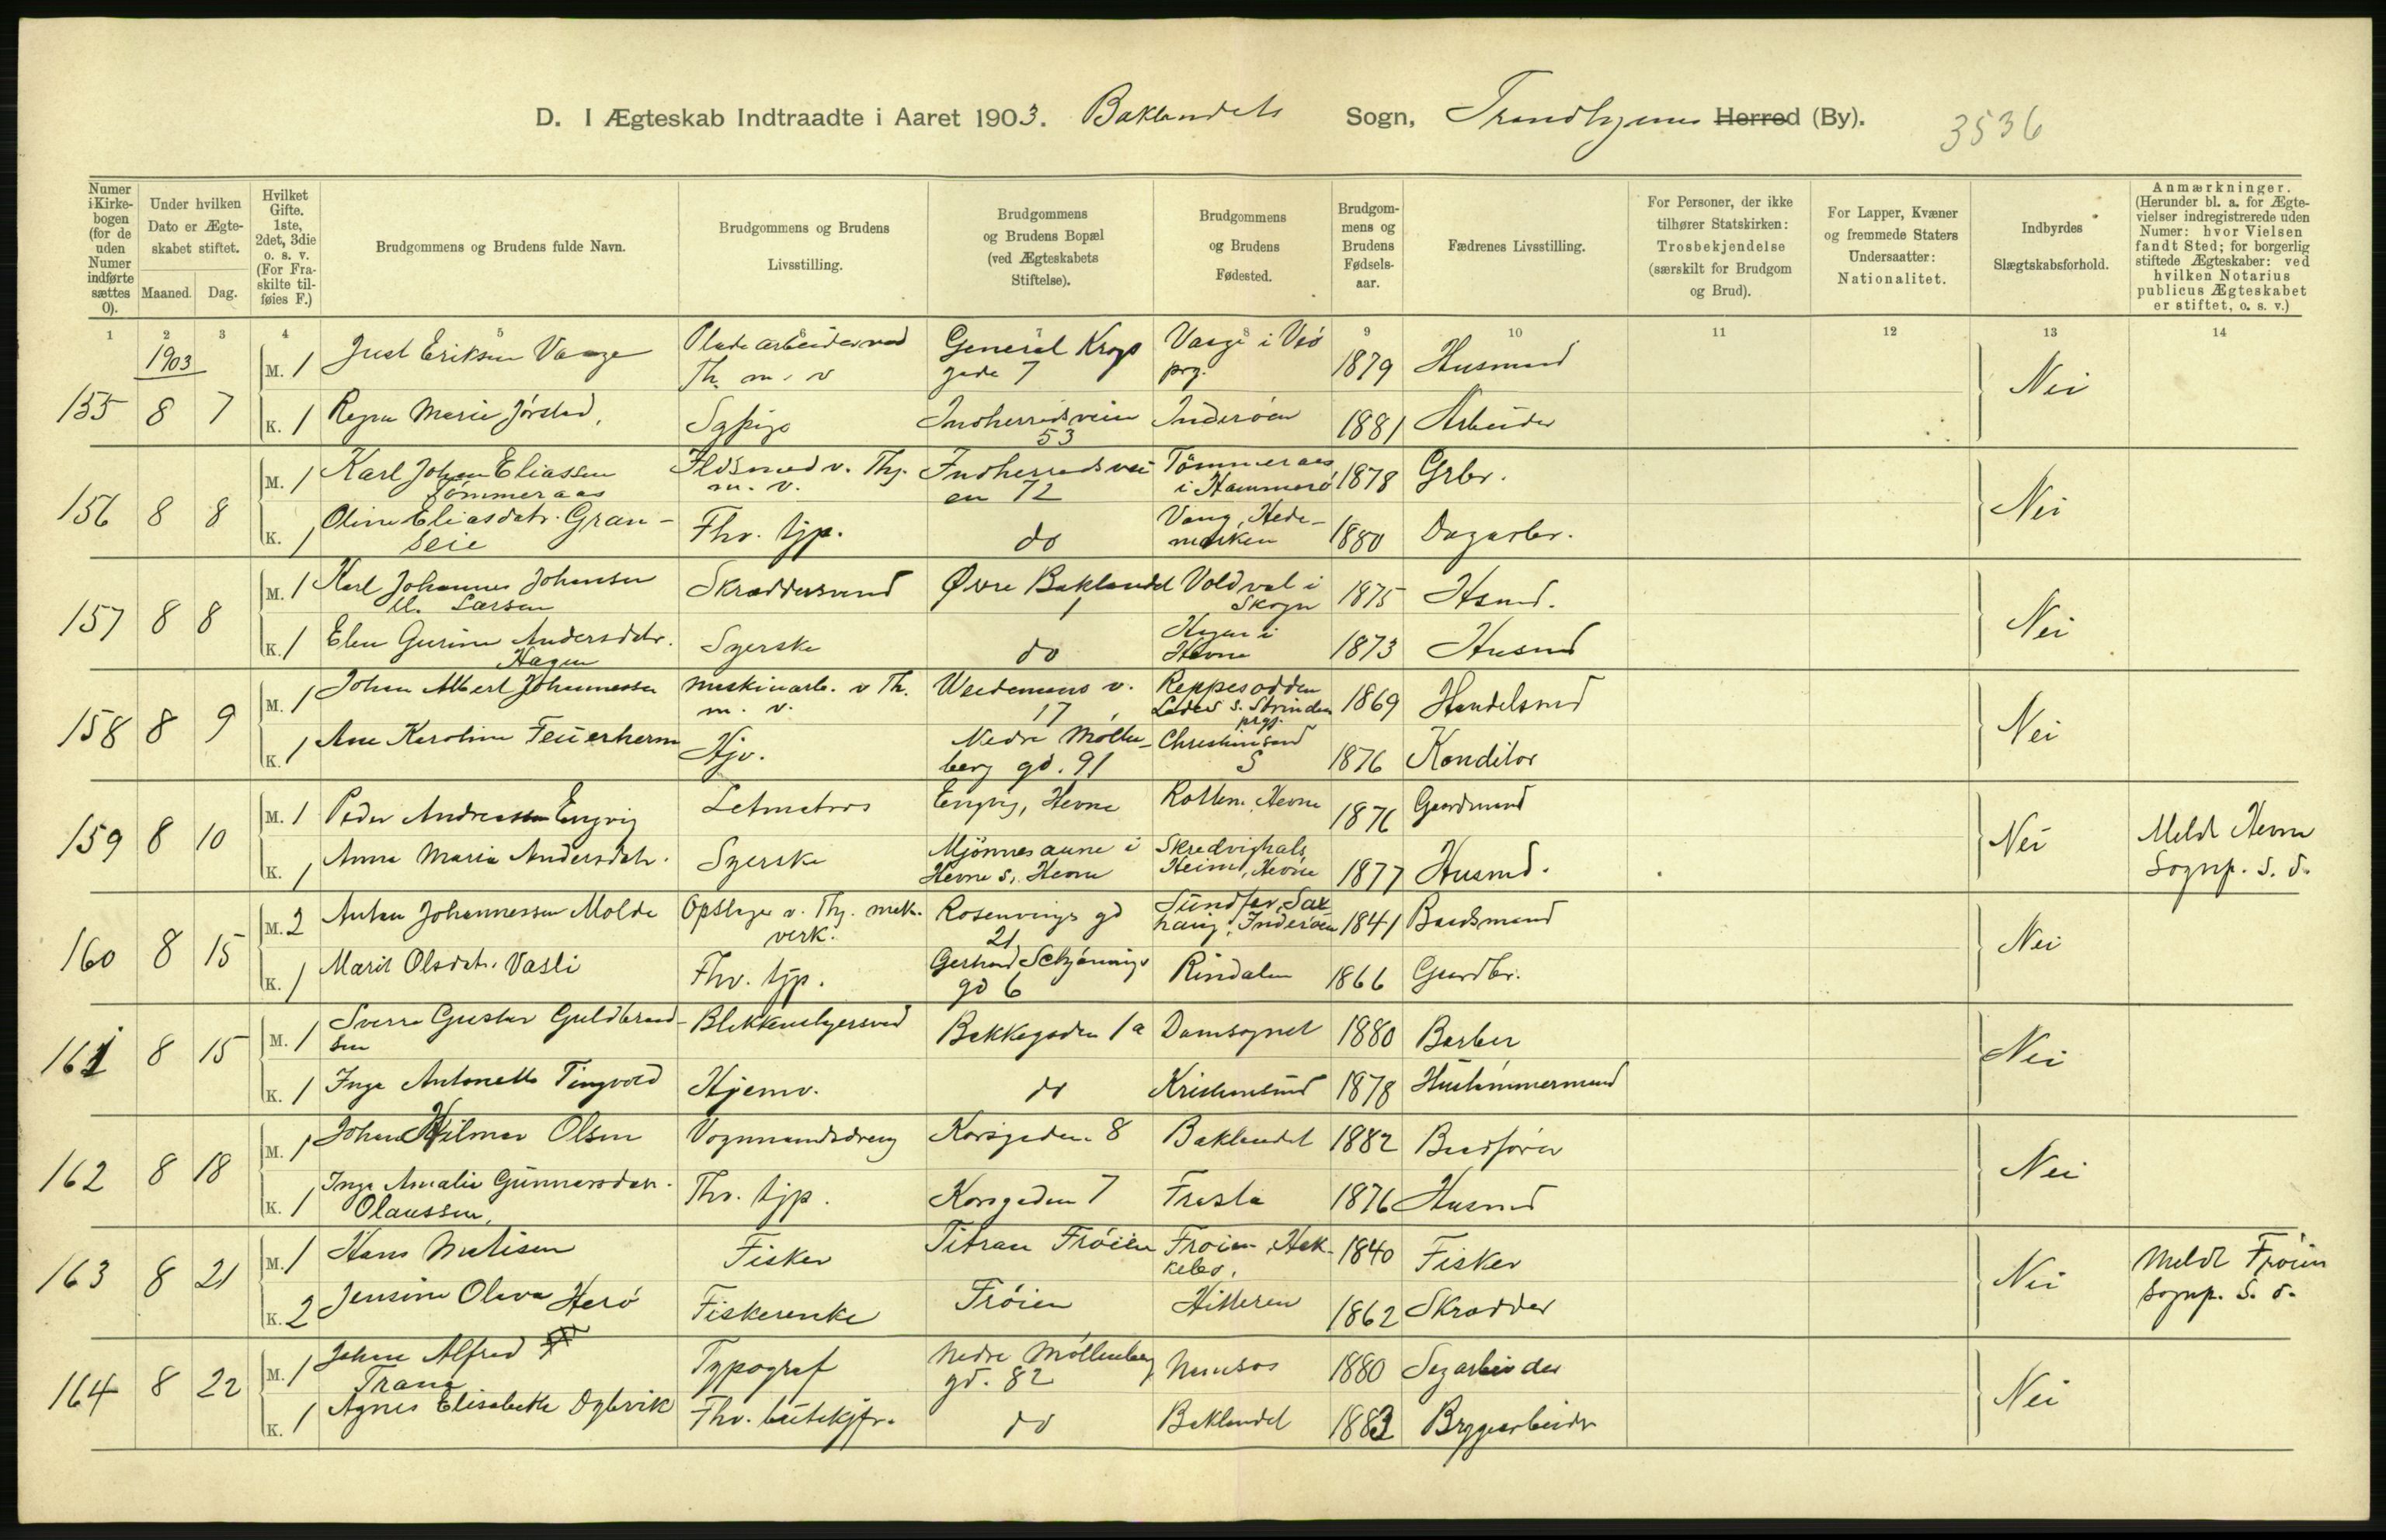 D. I Ægteskab Indtraadte i Aaret 1903. Baklandets Sogn, Trondhjems Herred (By). 3536
Numer i Kirkebogen (for de uden Numer indførte sættes 0).
Under hvilken Dato er Ægteskabet stiftet.
Maaned. Dag.
Hvilket Gifte. 1ste, 2det, 3die o. s. v. (For Fraskilte tilføies F.)
Brudgommens og Brudens fulde Navn.
Brudgommens og Brudens Livsstilling.
Brudgommens og Brudens Bopæl (ved Ægteskabets Stiftelse).
Brudgommens og Brudens Fødested.
Brudgommens og Brudens Fødselsaar.
Fædrenes Livsstilling.
For Personer, der ikke tilhører Statskirken: Trosbekjendelse (særskilt for Brudgom og Brud).
For Lapper, Kvæner og fremmede Staters Undersaatter: Nationalitet.
Indbyrdes Slægtskabsforhold.
Anmærkninger. (Herunder bl. a. for Ægtevielser indregistrerede uden Numer: hvor Vielsen fandt Sted; for borgerlig stiftede Ægteskaber: ved hvilken Notarius publicus Ægteskabet er stiftet, o. s. v.)
1 2 3 4 5 6 7 8 9 10 11 12 13 14
1903
155 8 7
M. 1 Just Eriksen Vaage Pladearbeider ved Th. m. v General Krogs gade 7 Vaage i Veø prg. 1879 Husmand
K. 1 Marie Jørstad, Sypige Indherredsveien 53 Inderøen 1881 Arbeider
Nei
156 8 8
M. 1 Karl Johan Eliassen Tømmeraas Ildsmed v. Thj. m. v. Indherredsveien 72 Tømmeraas i Hammerø 1878 Grbr.
K. 1 Oline Eliasdatr. Granseie Fhv. tjp. do Vang, Hedemarken 1880 Dagarbr.
Nei
157 8 8
M. 1 Karl Johannes Johansen Larsen Skræddersvend Øvre Baklandet 1 Voldval i Skogn 1875 Hsmd.
K. 1 Elen Gurine Andersdatr. Hagen Syerske do Hagen i Hevne 1873 Husmd
Nei
158 8 9
M. 1 Johan Albert Johannessen Maskinarb. v Th. m. v. Weidemans v. 17 Reppesodden Lades s. Strinden prgj. 1869 Handelsmd
K. 1 Ane Karoline Feuerherm Hjv. Nedre Møllenberg gd. 91 Christiansand S 1876 Konditor
Nei
159 8 10
M. 1 Peder Andreassen Engvig Letmatros Engvig, Hevne Rotten, Hevne 1876 Gaardmand
K. 1 Anna Maria Andersdatr. Syerske Mjønnesaune i Hevne s. Hevne Skredvighals Heim, Hevne 1877 Husmd.
Nei Meldt Hevne Sognp. S. D.
160 8 15
M. 2 Anton Johannessen Molde Opslager v. Thj. mek. verk. Rosenvinges gd 21 Sundfær, Saxhaug, Inderøen 1841 Baadsmand
K. 1 Marit Olsdatr. Vasli Fhv. tjp. Gerhard Schjønnings gd 6 Rindalen 1866 Gaardbr.
Nei
161 8 15
M. 1 Sverre Gustav Guldbrandsen Blikkenslagersvend Bakkegaden 1a Domsognet 1880 Barber
K. 1 Inga Antonette Tingvold Hjemv. do Kristiansund 1878 Hustømmermand
Nei
162 8 18
M. 1 Johan Hilmar Olsen Vognmandsdreng Korsgaden 8 Baklandet 1882 Baadfører
K. 1 Inga Amalie Gunnarsdatr. Olaussen, Fhv. tjp. Korsgaden 7 Frosta 1876 Husmd
Nei
163 8 21
M. 1 Hans Matisen Fisker Titran Frøien Frøien, Hak- 1840 Fisker
K. 2 Jensine Oleva Herø Fiskerenke Frøien Hitteren 1862 Skrædder
Nei Meldt Frøien Sognp. S. D.
164 8 22
M. 1 Johan Alfred Trana Typograf Nedre Møllenberg gd. 82 Namsos 1880 Sagarbeider
K. 1 Agnes Elisabeth Dybvik Fhv. butikjfr. do Baklandet 1883 Bryggearbeider
Nei